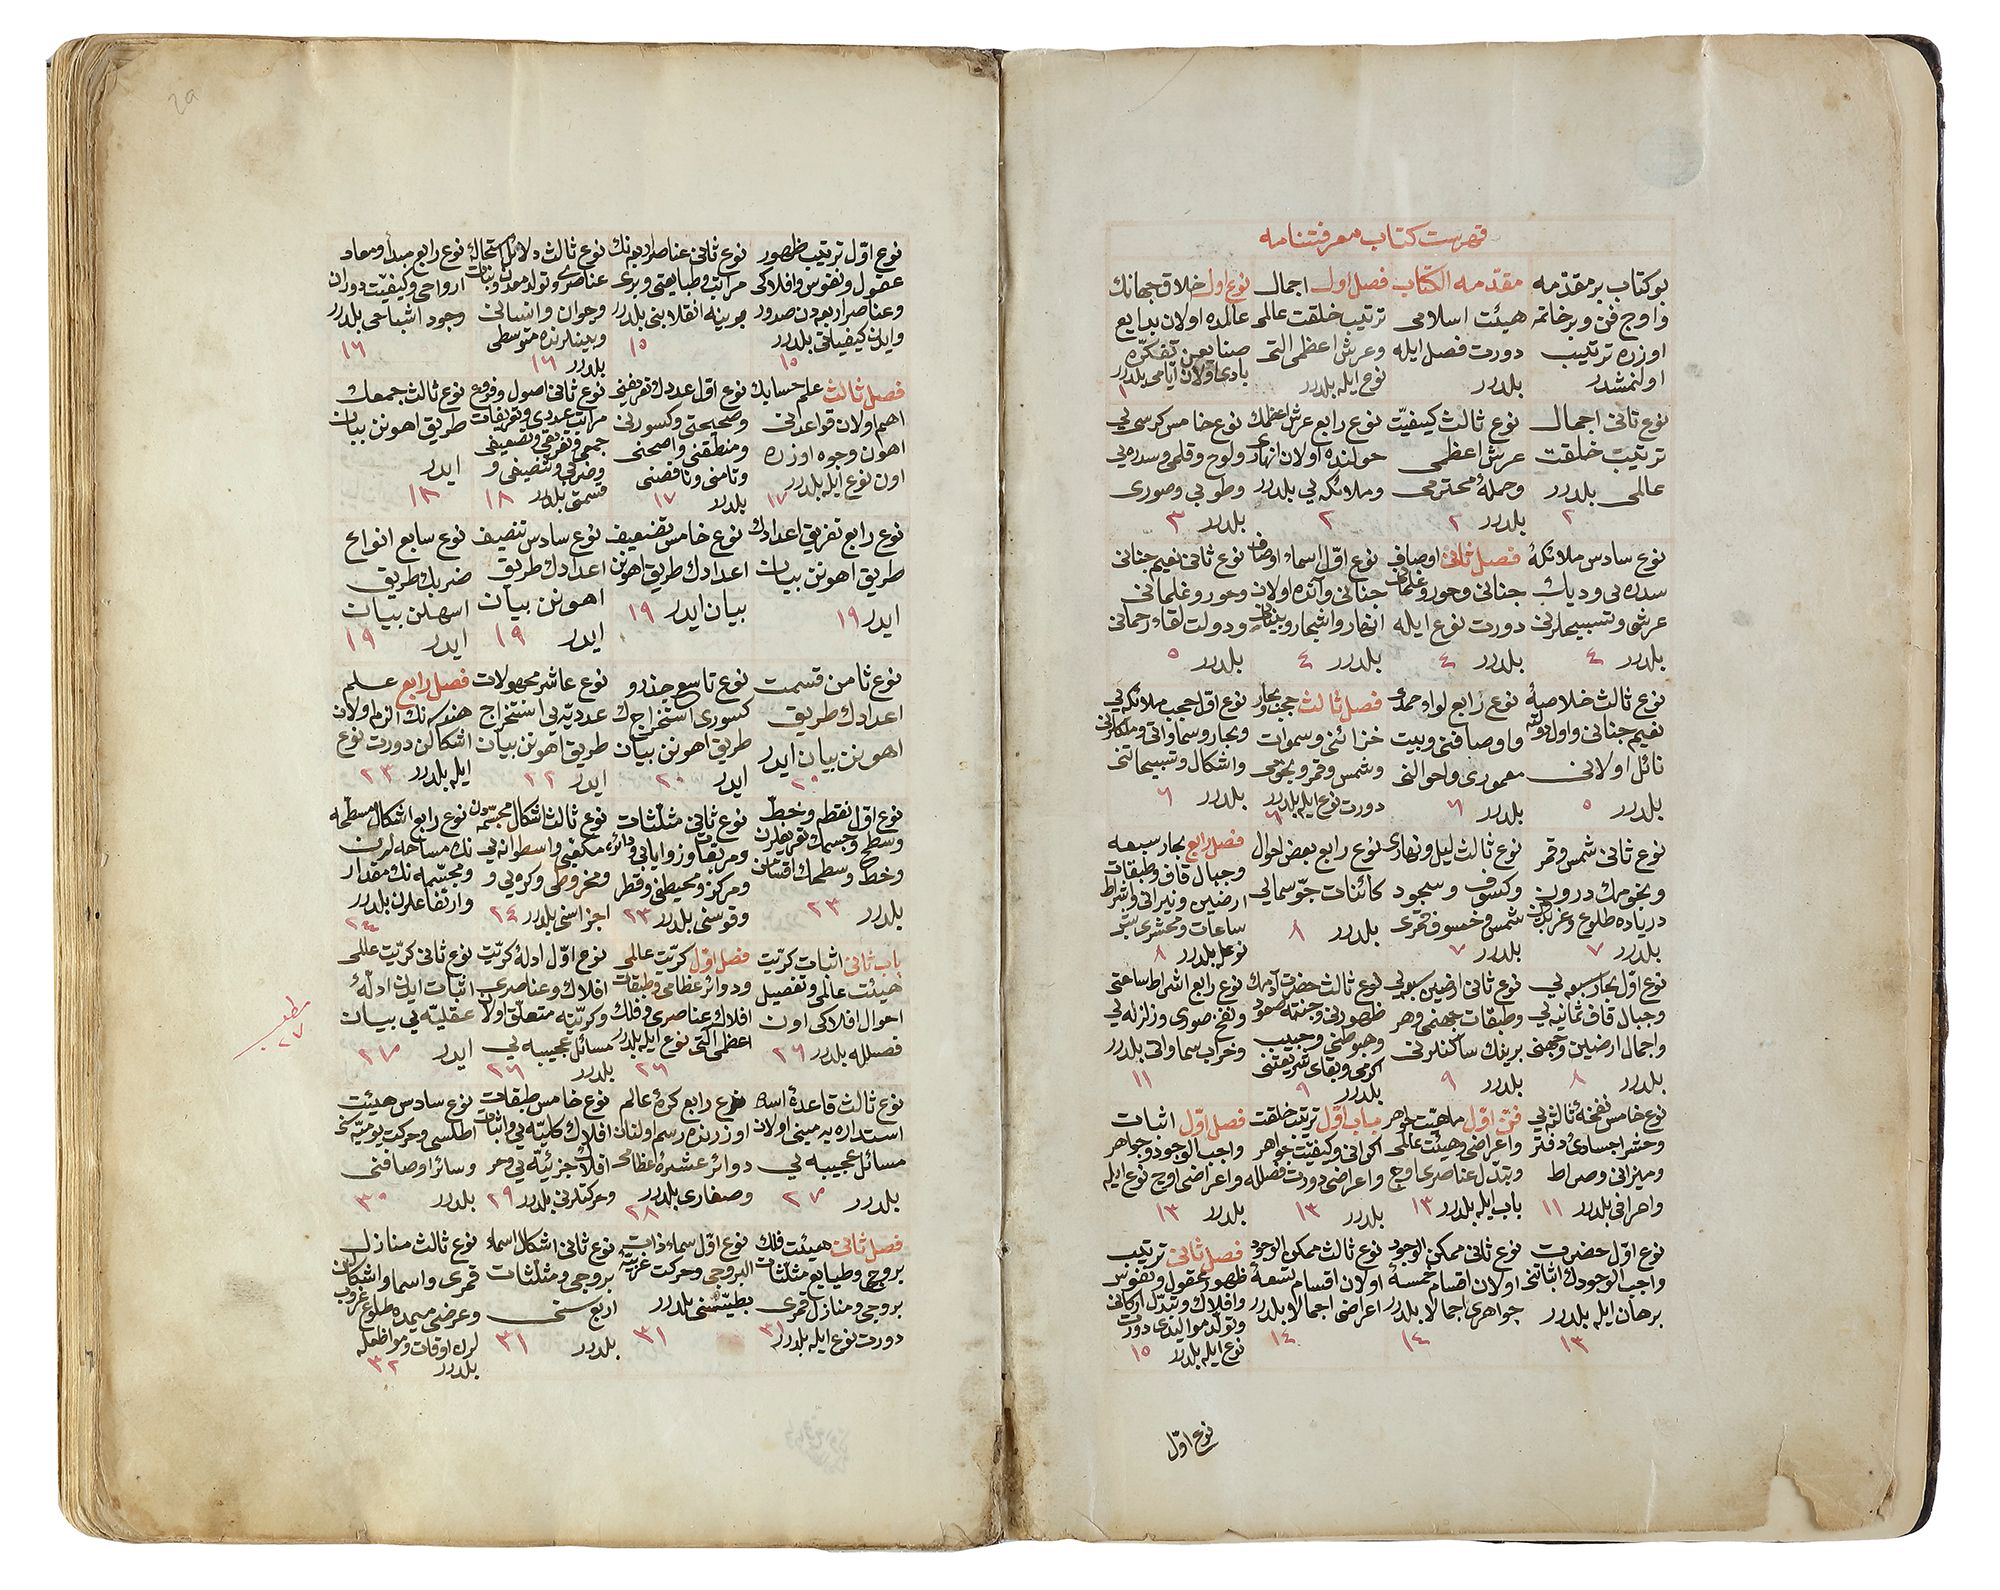 فهرست كتاب معرفتنامه
بو كتاب بر مقدمه
واوچ فن وبر خاتمه
اوزره ترتيب
اولنمشدر
مقدمه الكتاب
هيئت اسلامى
دورت فصل ايله
بلدرر
فصل اول اجمال
ترتيب خلقت عالمى
وعرش اعظمى التى
نوع ايله بلدرر
نوع اول خلاق جهانك
عالمده اولان بدايع
صنايعن تفكره
بادى اولان آيامى بلدرر
١
نوع ثانى اجمال
ترتيب خلقت
عالمى بلدرر
٢
نوع ثالث كيفيت
عرش اعظمى
وحملۀ محترمى
بلدرر ٢
نوع رابع عرش اعظمك
حولنده اولان انهارى
وملائكه يى بلدرر
٢
نوع خامس كرسى يى
ولوح وقلمى وسدره يى
وطوبى وصورى
بلدرر ٣
نوع سادس ملائكۀ
سدره يى وديك
عرشى وتسبيحلرنى
بلدرر ٤
فصل ثانى اوصاف
جنانى وحور وغلمانى
دورت نوع ايله
بلدرر ٤
نوع اول اسماء اوصاف
جنانى وآنده اولان
انهار واشجار وبنيانى
بلدرر ٤
نوع ثانى نعيم جنانى
وحور وغلمانى
ودولت لقاء رحمانى
بلدرر ٥
نوع ثالث خلاصۀ
نعيم جنانى واول دولته
نائل اولانى
بلدرر ٥
نوع رابع لواء حمدى
واوصافنى وبيت
معمورى واحوالنى
بلدرر ٦
فصل ثالث حجب وبحار
خزائنى وسموات
وشمس وقمر ونجومى
دورت نوع ايله بلدرر
٦
نوع اول حجب ملائكه يى
وبحار وسماواتى وملكلرنى
واشكال وتسبيحاتنى
بلدرر ٦
نوع ثانى شمس وقمر
ونجومك درون
درياده طلوع وغروبلرن
بلدرر ٧
نوع ثالث ليل ونهارى
وكسوف وسجود
شمس وخسوف قمرى
بلدرر ٧
نوع رابع بعض احوال
كائنات جو سمايى
بلدرر ٨
فصل رابع بحار سبعه
وجبال قاف وطبقات
ارضين ونيرانى واشراط
ساعات ومحشرى بش
نوعله بلدرر ٨
نوع اول بحار سبعه يى
وجبال قاف ثمانيه يى
واجمال ارضين وجهنمى
بلدرر ٨
نوع ثانى ارضين سبعه يى
وطبقات جهنمى وهر
برينك ساكنلرنى
بلدرر ٩
نوع ثالث حضرت آدمك
ظهورنى وجنته صعود
وهبوطنى وحبيب
اكرمى وبقاى شريعتنى
بلدرر ٩
نوع رابع اشراط ساعتى
ونفخ صورى وزلزله يى
وخراب سماواتى بلدرر
١١
نوع خامس نفخۀ ثالثه يى
وحشر اجسادى ودفتر
وميزانى وصراط
واعرافى بلدرر ١١
فن اول ماهيت جواهر
واعراضى وهيئت عالمى
وتبدل عناصرى اوچ
باب ايله بلدرر ١٣
باب اول ترتيب خلقت
اكوانى وكيفيت جواهر
واعراضى دورت فصلله
بلدرر ١٣
فصل اول اثبات
واجب الوجود وجواهر
واعراضى اوچ نوع ايله
بلدرر ١٣
نوع اول حضرت
واجب الوجودك اثباتنى
برهان ايله بلدرر
١٣
نوع ثانى ممكن الوجود
اولان اقسام خمسۀ
جواهرى اجمالا بلدرر
١٤
نوع ثالث ممكن الوجود
اولان اقسام تسعۀ
اعراضى اجمالا بلدرر
١٤
فصل ثانى ترتيب
ظهور عقول ونفوس
وافلاك وتبدل اركانى
وتولد مواليدى دورت
نوع ايله بلدرر ١٥
نوع اول
2a
نوع اول ترتيب ظهور
عقول ونفوس وافلاكى
وعناصر اربعه دن صدور
وايدن كيفياتى بلدرر
١٥
نوع ثانى عناصر اربعه نك
مراتب وطبايعنى وبرى
برينه انقلابنى بلدرر
١٥
نوع ثالث دلائل استحالۀ
عناصرى وتولد معدن ونبات
وحيوان وانسانى
وبينلرنده متوسطى
بلدرر ١٦
نوع رابع مبدأ ومعاد
ارواحى وكيفيت دوران
وجود اشباحى بلدرر
١٦
فصل ثالث علم حسابك
اهم اولان قواعدنى
اهون وجوه اوزره
اون نوع ايله بلدرر ١٧
نوع اول عددك تعريفنى
وصحيحنى وكسورنى
ومنطقنى واصمنى
وتامنى وناقصنى
بلدرر ١٧
نوع ثانى اصول وفروع
مراتب عددى وتعريفات
جمعى وتفريقى وتضعيفى
وضربى وتنصيفى و
قسمتى بلدرر ١٨
نوع ثالث جمعك
طريق اهونن بيان
ايدر
١٨
نوع رابع تفريق اعدادك
طريق اهونن بيان
ايدر ١٩
نوع خامس تضعيف
اعدادك طريق اهونن
بيان ايدر ١٩
نوع سادس تنصيف
اعدادك طريق
اهونن بيان
ايدر ١٩
نوع سابع انواع
ضربك طريق
اسهلن بيان
ايدر ١٩
نوع ثامن قسمت
اعدادك طريق
اهونن بيان ايدر
٢٠
نوع تاسع جذر و
كسورى استخراجك
طريق اهونن بيان
ايدر ٢٠
نوع عاشر مجهولات
عدديه يى استخراج
طريق اهونن بيان
ايدر ٢٢
فصل رابع علم
هندسه نك الزم اولان
اشكالن دورت نوع
ايله بلدرر ٢٣
نوع اول نقطه وخط
وسطح وجسمك تعريفلرن
وخط وسطحك اقسامن
بلدرر ٢٣
نوع ثانى مثلثات
ومربعات وزواياى ودائره
ومركز ومحيطنى وقطر
وقوسنى بلدرر ٢٣
نوع ثالث اشكال مجسمه دن
مكعبى واسطوانه يى
ومخروطى وكره يى و
اجزاسنى بلدرر ٢٤
نوع رابع اشكال مسطحه
نك مساحه لرن
ومجسمه نك مقدار
وارتفاعلرن بلدرر
٢٤
باب ثانى اثبات كريت
هيئت عالمى وتفصيل
احوال افلاكى اون
فصلله بلدرر ٢٦
فصل اول كريت عالمى
ودوائر عظامى وطبقات
افلاك وعناصرى وفلك
اعظمى التى نوع ايله بلدرر
٢٦
نوع اول ادلۀ كريت
افلاك وعناصرى
وكريته متعلق اولان
مسائل عجيبه يى
بلدرر ٢٦
نوع ثانى كريت عالمى
اثبات ايدن ادلۀ
عقليه يى بيان
ايدر ٢٧
مطلب
٢٧
نوع ثالث قاعدۀ اسه
استداره يه مبنى اولان
مسائل عجيبه يى
بلدرر ٢٧
نوع رابع كرۀ عالم
اوزرنده رسم اولنان
دوائر عشرۀ عظامى
وصغارى بلدرر
٢٨
نوع خامس طبقات
افلاك كليه يى واثبات
افلاك جزئيه يى وهر
وحركتلرنى بلدرر ٢٩
نوع سادس هيئت
اطلسى وحركت يوميه سنى
وسائر اوصافنى
بلدرر ٣٠
فصل ثانى هيئت فلك
بروجى وطبايع مثلثات
بروجى ومنازل قمرى
دورت نوع ايله بلدرر
٣١
نوع اول سماء ذات
البروجى وحركت غربيۀ
بطيئه سنى بلدرر
٣١
نوع ثانى اشكال اسماء
بروجى ومثلثات
اربع سنى
بلدرر ٣١
نوع ثالث منازل
قمرى واسما واشكالن
وعرضى ميمده طلوع غروب
لرك اوقات ومواضعله
بلدرر ٣٢